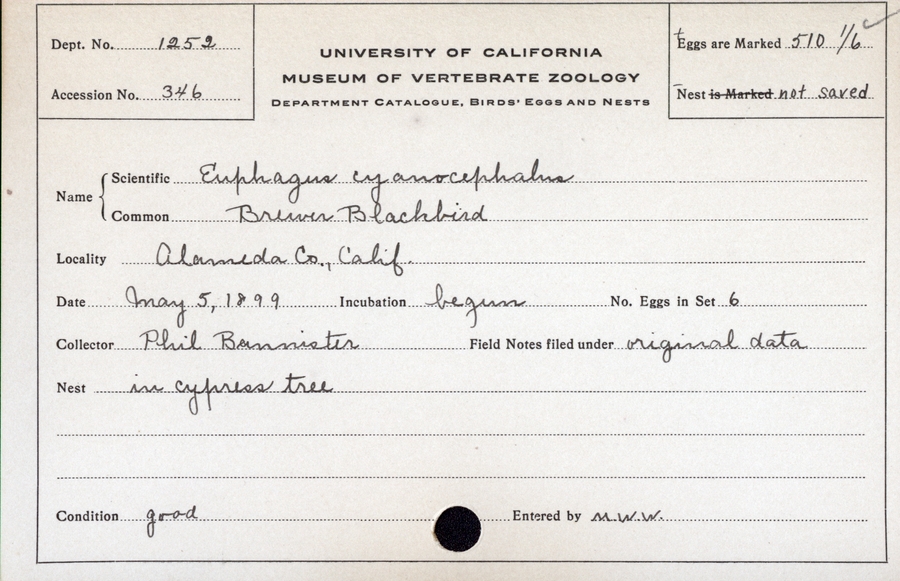 Dept. No. 1252
Accession No. 346
UNIVERSITY OF CALIFORNIA
MUSEUM OF VERTEBRATE ZOOLOGY
DEPARTMENT CATALOGUE, BIRDS' EGGS AND NESTS
Eggs are Marked 510 1/6
Nest is Marked not saved
Name
Scientific Euphagus cyanocephalus
Common Brewer Blackbird
Locality Alameda Co., Calif.
Date May 5, 1899 Incubation begun No. Eggs in Set 6
Collector Phil Bannister Field Notes filed under original data
Nest in cypress tree
Condition good Entered by M.W.W.